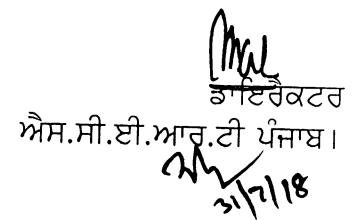 ਡਾਇਰੈਕਟਰ
ਐਸ.ਸੀ.ਈ.ਆਰ.ਟੀ ਪੰਜਾਬ।
31/7/18